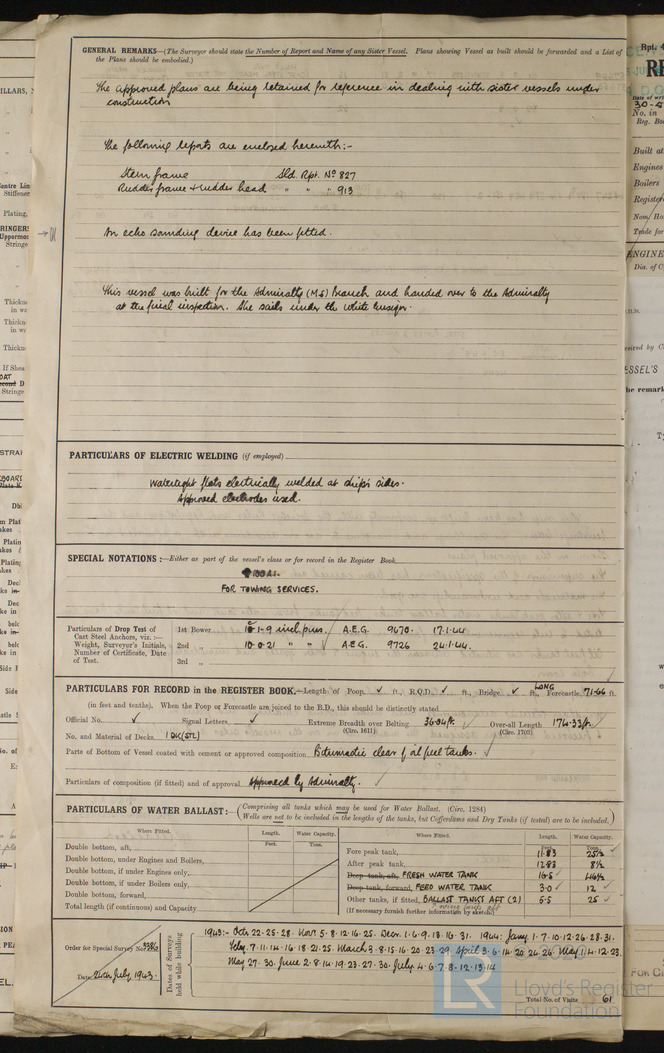 GENERAL REMARKS—(The Surveyor should state the Number of Report and Name of any Sister Vessel. Plans showing Vessel as built should be forwarded and a List of
the Plans should be embodied.)
The approved plans are being retained for reference in dealing with sister vessels under
construction
The following reports are enclosed herewith:-
Stern frame Sld. Rpt. No 827
Rudder frame & rudder head " " " 913
An echo sounding device has been fitted.
This vessel was built for the Admiralty (MS) Branch and handed over to the Admiralty
at the final inspection. She sails under the White Ensign.
PARTICULARS OF ELECTRIC WELDING (if employed)
Watertight flats electrically welded at ship's sides.
Approved electrodes used.
SPECIAL NOTATIONS :—Either as part of the vessel's class or for record in the Register Book
FOR TOWING SERVICES.
Particulars of Drop Test of
Cast Steel Anchors, viz. :—
Weight, Surveyor's Initials,
Number of Certificate, Date
of Test.
1st Bower 10-1-9 incl. pins. A.E.G. 9670. 17.1.44
2nd " 10-0-21 " " A.E.G. 9726 24.1.44.
3rd "
PARTICULARS FOR RECORD in the REGISTER BOOK.—Length of Poop ✓ ft., R.Q.D. ✓ ft., Bridge ✓ ft., LONG Forecastle 71.66 ft.
(in feet and tenths). When the Poop or Forecastle are joined to the B.D., this should be distinctly stated
Official No. ✓ Signal Letters ✓ Extreme Breadth over Belting 36.04 ft. Over-all Length 174.33 ft.
(Circ. 1611) (Circ. 1703)
No. and Material of Decks 1 DK (STL)
Parts of Bottom of Vessel coated with cement or approved composition Bitumastic clear of oil fuel tanks.
Particulars of composition (if fitted) and of approval Approved by Admiralty.
PARTICULARS OF WATER BALLAST:—(Comprising all tanks which may be used for Water Ballast. (Circ. 1284)
Wells are not to be included in the lengths of the tanks, but Cofferdams and Dry Tanks (if tested) are to be included.)
Where Fitted. Length. Water Capacity.
Feet. Tons.
Double bottom, aft,
Double bottom, under Engines and Boilers,
Double bottom, if under Engines only,
Double bottom, if under Boilers only,
Double bottom, forward,
Total length (if continuous) and Capacity
Where Fitted. Length. Water Capacity.
Feet. Tons.
Fore peak tank, 11.83 25½
After peak tank, 12.83 8½
Deep tank, aft, FRESH WATER TANK 16.5
Deep tank, forward, FEED WATER TANK 3.0 12
Other tanks, if fitted, BALLAST TANKS AFT (2) 5.5 25
(If necessary furnish further information by sketch.)
Order for Special Survey No.
Date 24th July 1943.
Dates of Surveys held while building
1943:- Octr 22.25.28. Novr 5.8.12.16.25. Decr. 1.6.9.13.16.31. 1944: Jany 1.7.10.12.26.28.31.
Feby. 7.11.14.16.18.21.25. March 3.8.15.16.20.23.29. April 3.6.14.20.24.26. May 1.4.12.23.
May 27.30. June 2.8.14.19.23.27.30. July. 4.6.7.8.12.13.14
Total No. of Visits 61
© 2020
LR
Lloyd's Register
Foundation